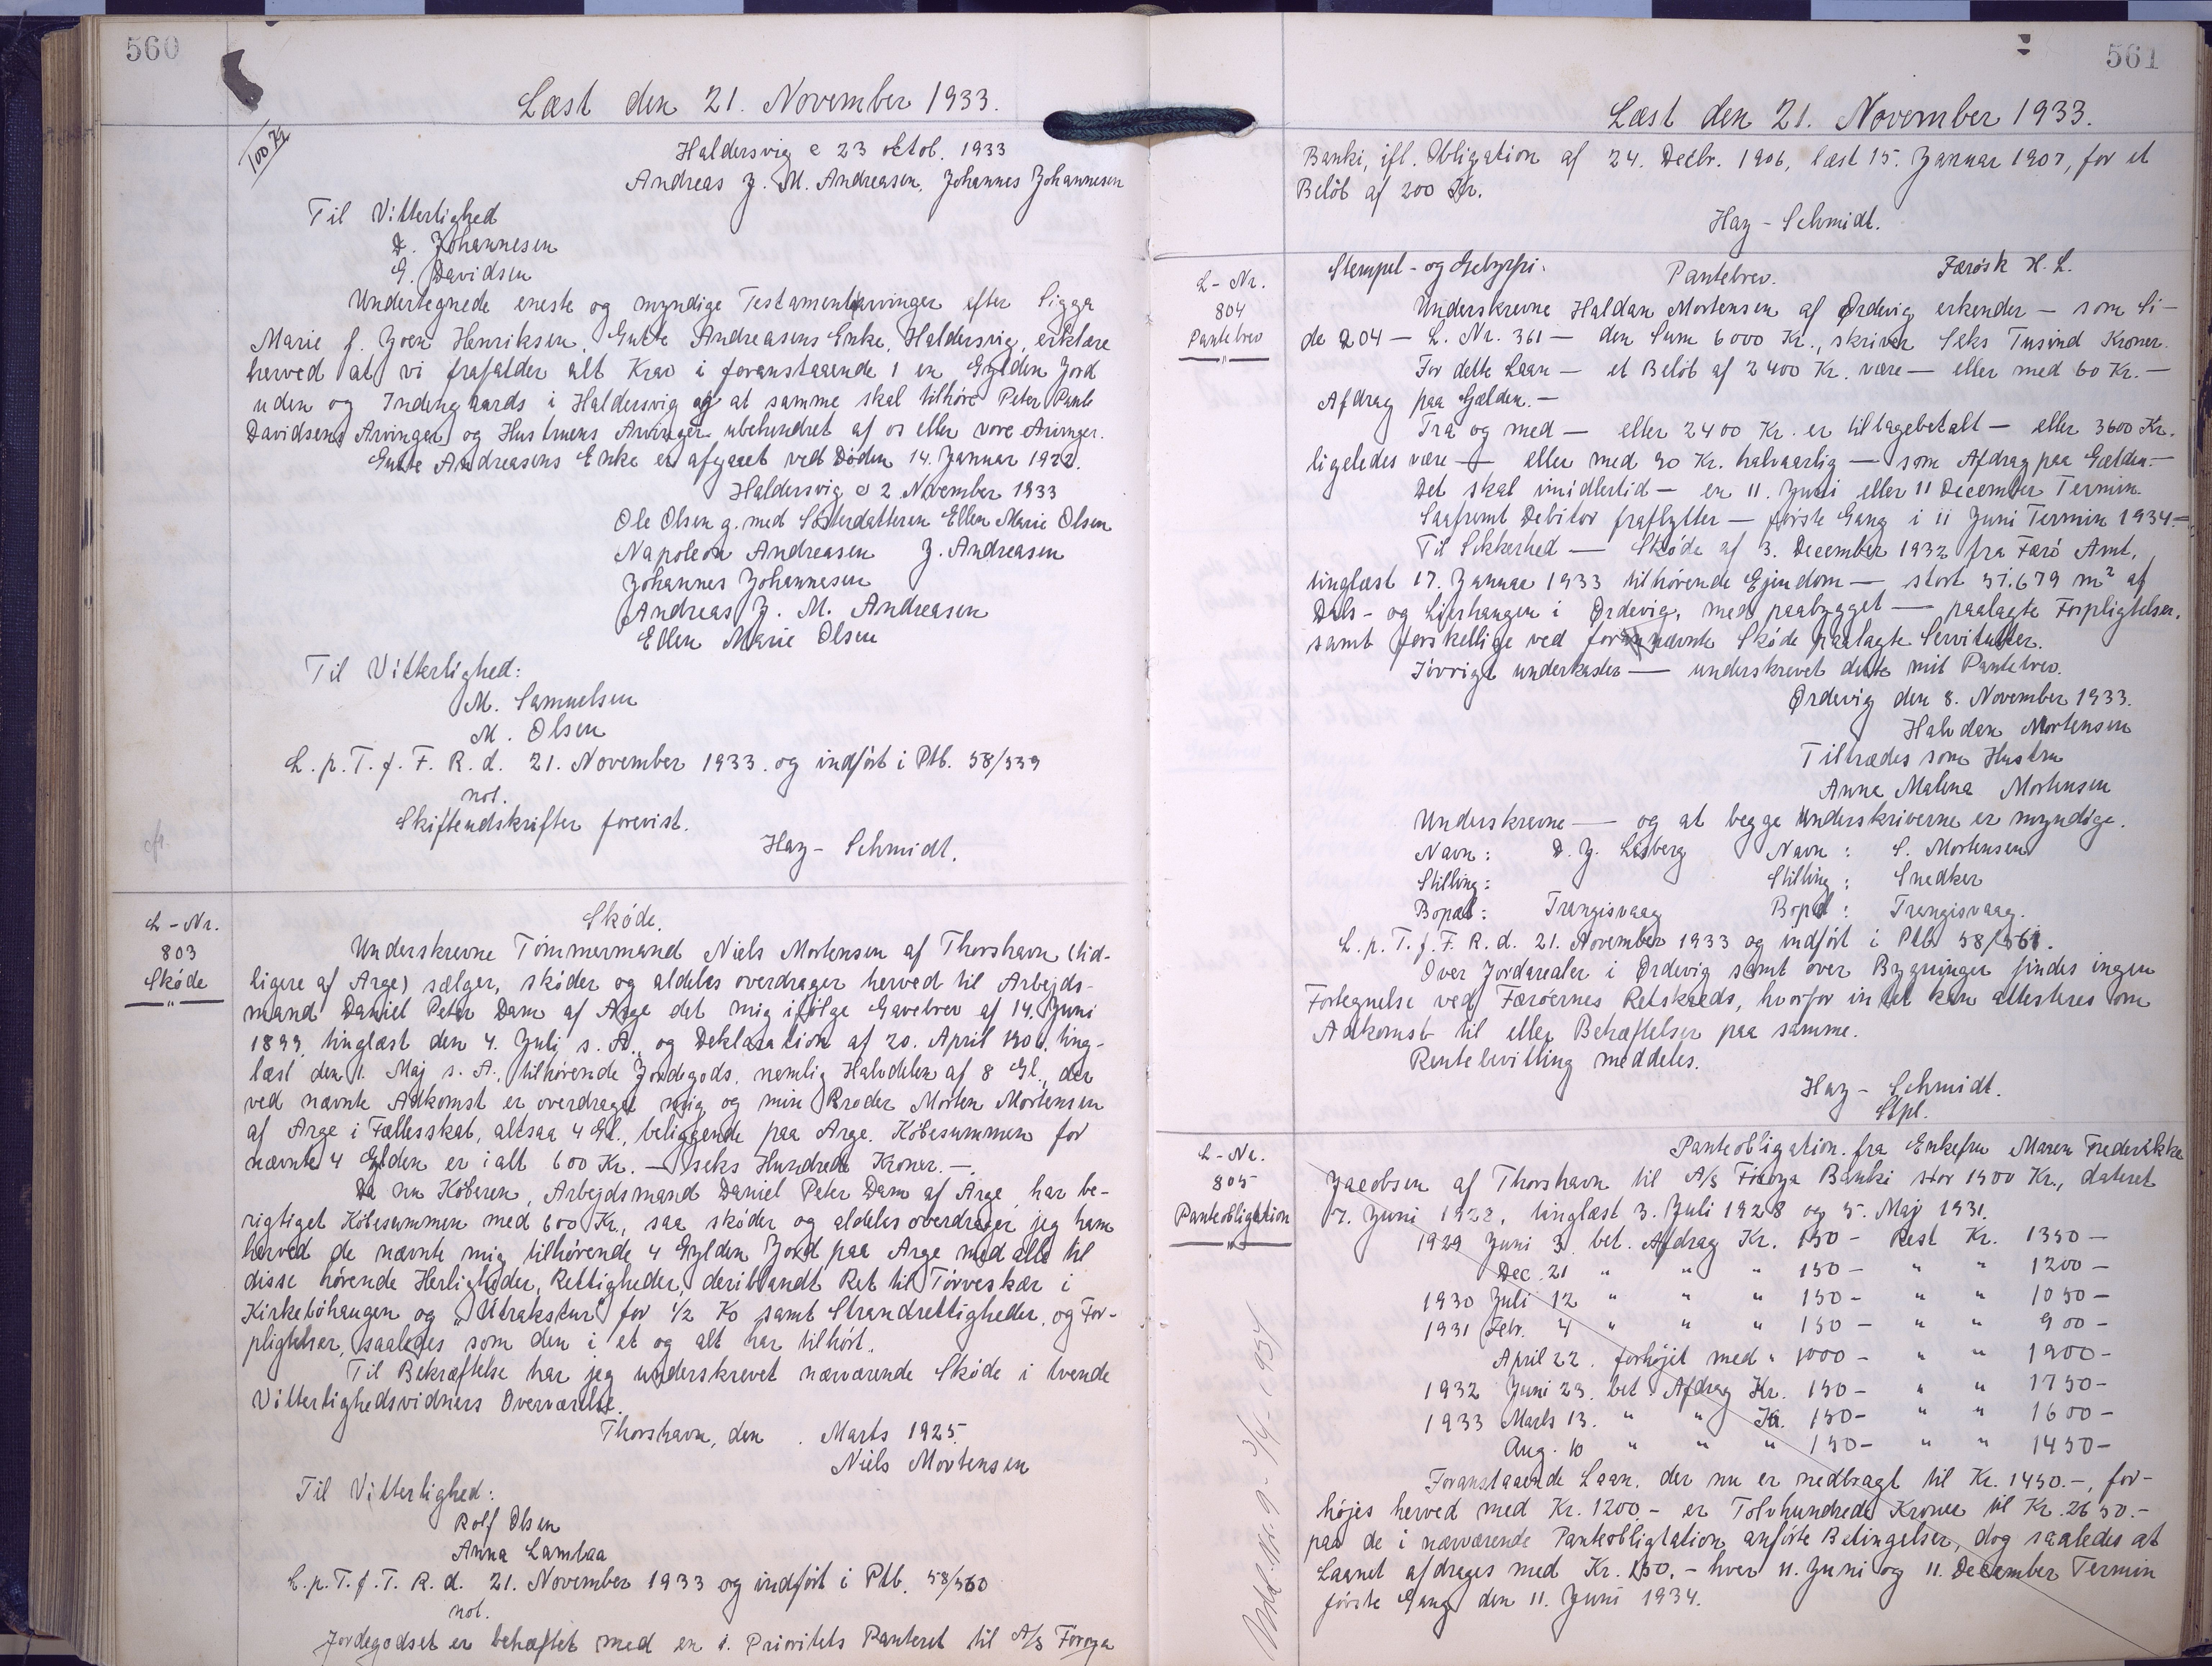 560
Læst den 21. November 1933.
100 Kr
Haldersvig d 23 oktob. 1933
Andreas J. M. Andreasen, Johannes Johannesen
Til Vitterlighed
D. Johannesen
G. Davidsen
Undertegnede eneste og myndige Testamentarvinger efter Sigga
Marie f. Joen Henriksen, Gutte Andreasens Enke, Haldersvig, erklære
herved at vi frafalder alt Krav i foranstaaende 1 en Gylden Jord
uden og Indengaards i Haldersvig og at samme skal tilhøre Peter Pauli
Davidsens Arvinger og Hustruens Arvinger ubehindret af os eller vore Arvinger.
Gutte Andreasens Enke er afgaaet ved Døden 14. Januar 1922.
Haldersvig d 2 November 1933
Ole Olsen g. med Søsterdatteren Ellen Marie Olsen
Napoleon Andreasen J. Andreasen
Johannes Johannesen
Andreas J. M. Andreasen
Ellen Marie Olsen
Til Vitterlighed:
M. Samuelsen
M. Olsen
L. p. T. f. F. R. d. 21. November 1933. og indført i Ptb. 58/559
not.
Skifteudskrifter forevist.
Hay-Schmidt.
cfr.
L-Nr.
803
Skøde
Skøde.
Underskrevne Tømmermand Niels Mortensen af Thorshavn (tid-
ligere af Arge) sælger, skøder og aldeles overdrager herved til Arbejds-
mand Daniel Peter Dam af Arge det mig ifølge Gavebrev af 14. Juni
1899, tinglæst den 4. Juli s. A., og Deklaration af 20. April 1906, ting-
læst den 1. Maj s. A., tilhørende Jordegods, nemlig Halvdelen af 8 Gl., der
ved nævnte Adkomst er overdraget mig og min Broder Morten Mortensen
af Arge i Fællesskab, altsaa 4 Gl., beliggende paa Arge. Købesummen for
nævnte 4 Gylden er ialt 600 Kr. — seks Hundrede Kroner. —.
Da nu Køberen, Arbejdsmand Daniel Peter Dam af Arge, har be-
rigtiget Købesummen med 600 Kr., saa skøder og aldeles overdrager jeg ham
herved de nævnte mig tilhørende 4 Gylden Jord paa Arge med alle til
disse hørende Herligheder, Rettigheder, deriblandt Ret til Tørveskær i
Kirkebøhaugen og "Utrakstur" for 1/2 Ko samt Strandrettigheder, og For-
pligtelser, saaledes som den i et og alt har tilhørt..
Til Bekræftelse har jeg underskrevet nærværende Skøde i tvende
Vitterlighedsvidners Overværelse.
Thorshavn, den . Marts 1925.
Niels Mortensen
Til Vitterlighed:
Rolf Olsen
Anna Lamhaa
L. p. T. f. F. R. d. 21. November 1933 og indført i Ptb. 58/560
not.
Jordegodset er behæftet med en 1. Prioritets Panteret til A/S Føroya
561
Læst den 21. November 1933.
Banki, ifl. Obligation af 24. Decbr. 1906, læst 15. Januar 1907, for et
Beløb af 200 Kr.
Hay-Schmidt.
L-Nr.
804
Pantebrev
Stempel- og Gebyrfri. Pantebrev. Færøsk H. L.
Underskrevne Haldan Mortensen af Ørdevig erkender — som Si-
de 204 — L. Nr. 361 — den Sum 6000 Kr., skriver Seks Tusind Kroner.
For dette Laan — et Beløb af 2400 Kr. være — eller med 60 Kr. —
Afdrag paa Gælden. —
Fra og med — eller 2400 Kr. er tilbagebetalt — eller 3600 Kr.
ligeledes være — eller med 90 Kr. halvaarlig — som Afdrag paa Gælden. —
Det skal imidlertid — en 11. Juni eller 11 December Termin.
Saafremt Debitor fraflytter — første Gang i 11 Juni Termin 1934. —
Til Sikkerhed — Skøde af 3. December 1932 fra Færø Amt,
tinglæst 17. Januar 1933 tilhørende Ejendom — stort 57.679 m² af
Dals- og Liberhaugen i Ørdevig, med paabygget — paalagte Forpligtelser,
samt forskellige ved forannævnte Skøde paalagte Servitutter.
Iøvrigt underkaster — underskrevet dette mit Pantebrev.
Ørdevig den 8. November 1933.
Halvdan Mortensen
Tiltrædes som Hustru
Anna Malena Mortensen
Underskrevne — og at begge Underskriverne er myndige.
Navn: D. J. Lisberg Navn: S. Mortensen
Stilling: Stilling: Snedker
Bopæl: Trangisvaag Bopæl: Trangisvaag.
L. p. T. f. F. R. d. 21. November 1933 og indført i Ptb 58/561.
Over Jordarealer i Ørdevig samt over Bygninger findes ingen
Fortegnelse ved Færøernes Retskreds, hvorfor intet kan attesteres om
Adkomst til eller Behæftelser paa samme.
Rentebevilling meddeles.
Hay-Schmidt.
Stpl.
L-Nr.
805
Panteobligation
Panteobligation fra Enkefru Maren Frederikke
Jacobsen af Thorshavn til A/S Føroya Banki stor 1500 Kr., dateret
7. Juni 1928, tinglæst 3. Juli 1928 og 5. Maj 1931.
1929 Juni 3. bet. Afdrag Kr. 150- Rest Kr. 1350-
Dec. 21 " " " 150- " " 1200-
1930 Juli 12 " " " 150- " " 1050-
1931 Febr. 4 " " " 150- " " 900-
April 22. forhøjet med " 1000- " " 1900-
1932 Juni 23. bet Afdrag Kr. 150- " " 1750-
1933 Marts 13. " " Kr. 150- " " 1600-
Aug. 10 " " " 150- " " 1450-
Foranstaaende Laan, der nu er nedbragt til Kr. 1450.-, for-
højes herved med Kr. 1200.- er Tolvhundrede Kroner til Kr. 2650.-
paa de i nærværende Panteobligtation anførte Betingelser, dog saaledes at
Laanet afdrages med Kr. 150.- hver 11. Juni og 11. December Termin
første Gang den 11. Juni 1934.